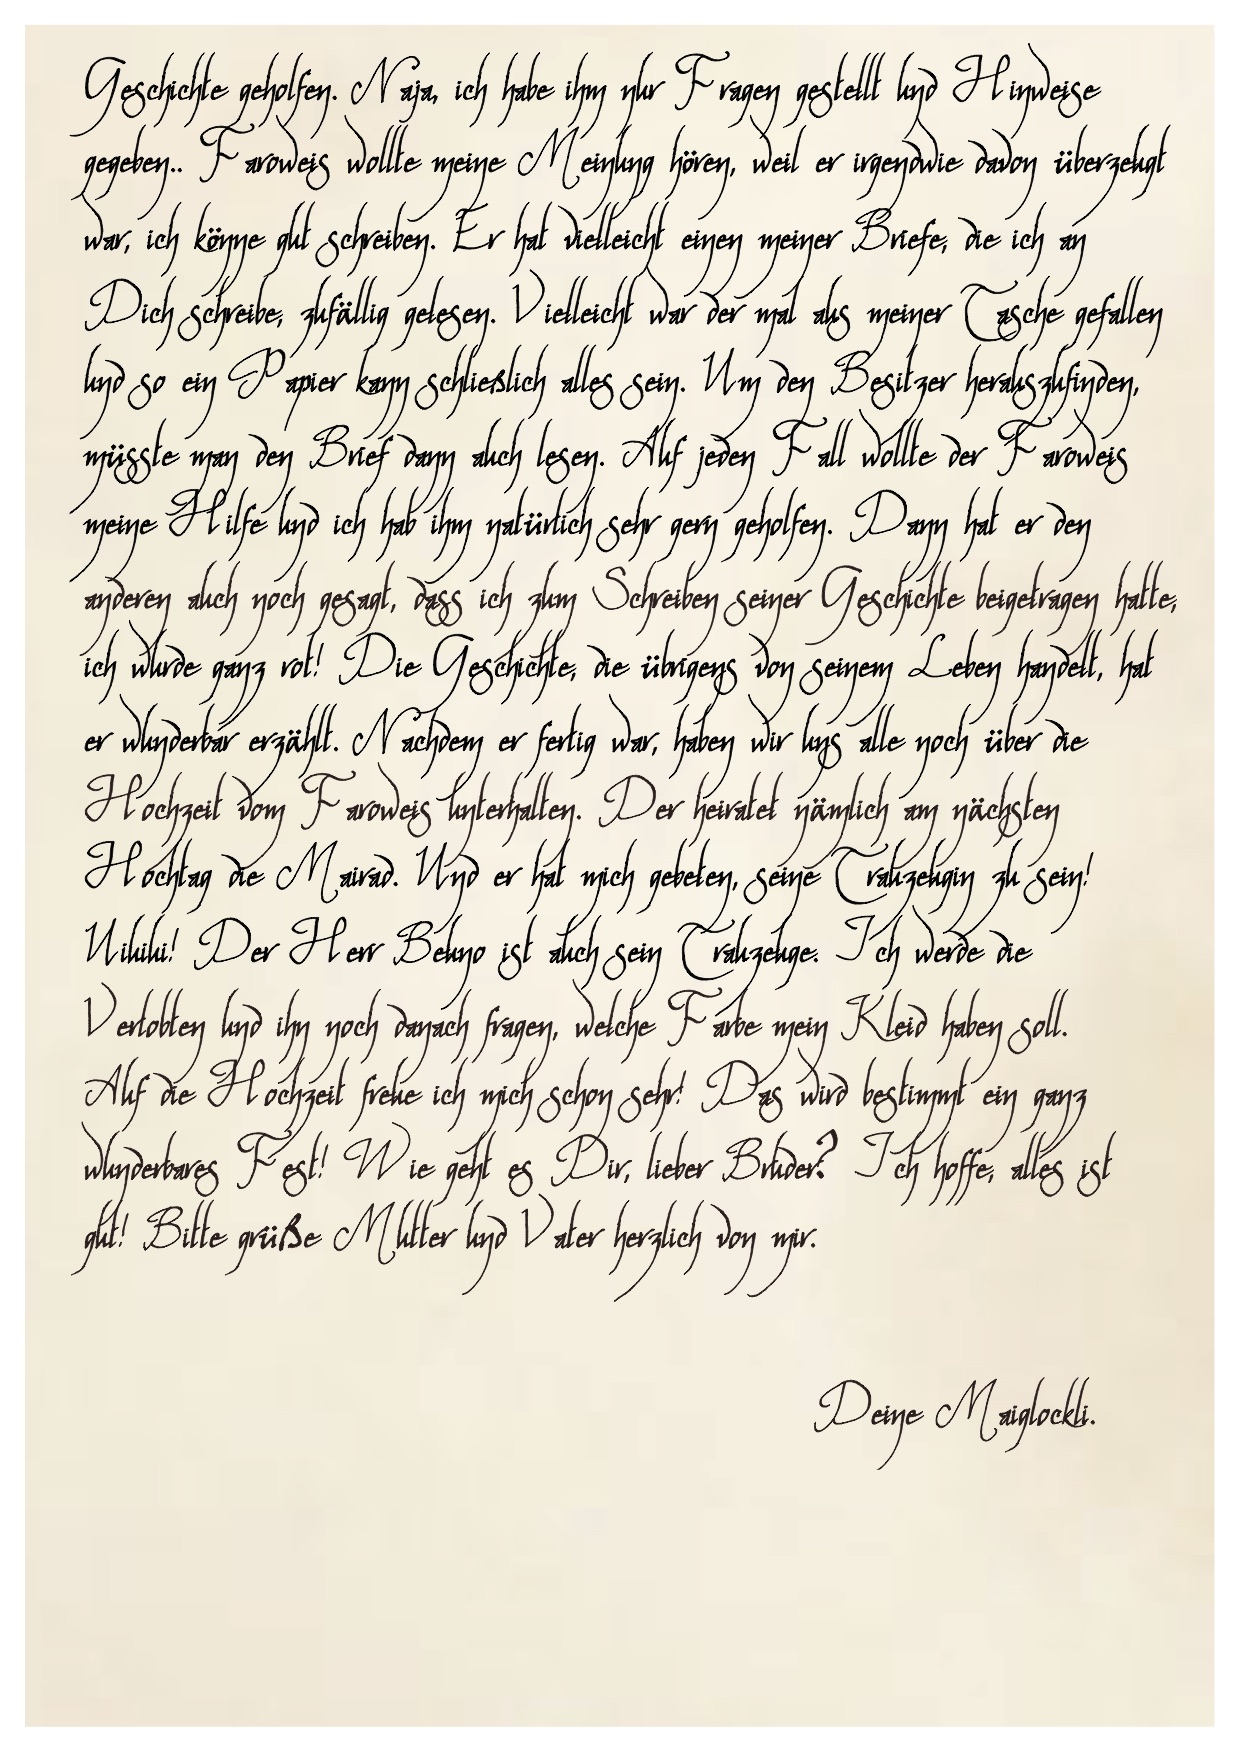 Geschichte geholfen. Naja, ich habe ihm nur Fragen gestellt und Hinweise
gegeben.. Faroweis wollte meine Meinung hören, weil er irgendwie davon überzeugt
war, ich könne gut schreiben. Er hat vielleicht einen meiner Briefe, die ich an
Dich schreibe, zufällig gelesen. Vielleicht war der mal aus meiner Tasche gefallen
und so ein Papier kann schließlich alles sein. Um den Besitzer herauszufinden,
müsste man den Brief dann auch lesen. Auf jeden Fall wollte der Faroweis
meine Hilfe und ich hab ihm natürlich sehr gern geholfen. Dann hat er den
anderen auch noch gesagt, dass ich zum Schreiben seiner Geschichte beigetragen hatte,
ich wurde ganz rot! Die Geschichte, die übrigens von seinem Leben handelt, hat
er wunderbar erzählt. Nachdem er fertig war, haben wir uns alle noch über die
Hochzeit vom Faroweis unterhalten. Der heiratet nämlich am nächsten
Hochtag die Mairad. Und er hat mich gebeten, seine Trauzeugin zu sein!
Uiuiui! Der Herr Beuno ist auch sein Trauzeuge. Ich werde die
Verlobten und ihn noch danach fragen, welche Farbe mein Kleid haben soll.
Auf die Hochzeit freue ich mich schon sehr! Das wird bestimmt ein ganz
wunderbares Fest! Wie geht es Dir, lieber Bruder? Ich hoffe, alles ist
gut! Bitte grüße Mutter und Vater herzlich von mir.
Deine Maiglockli.